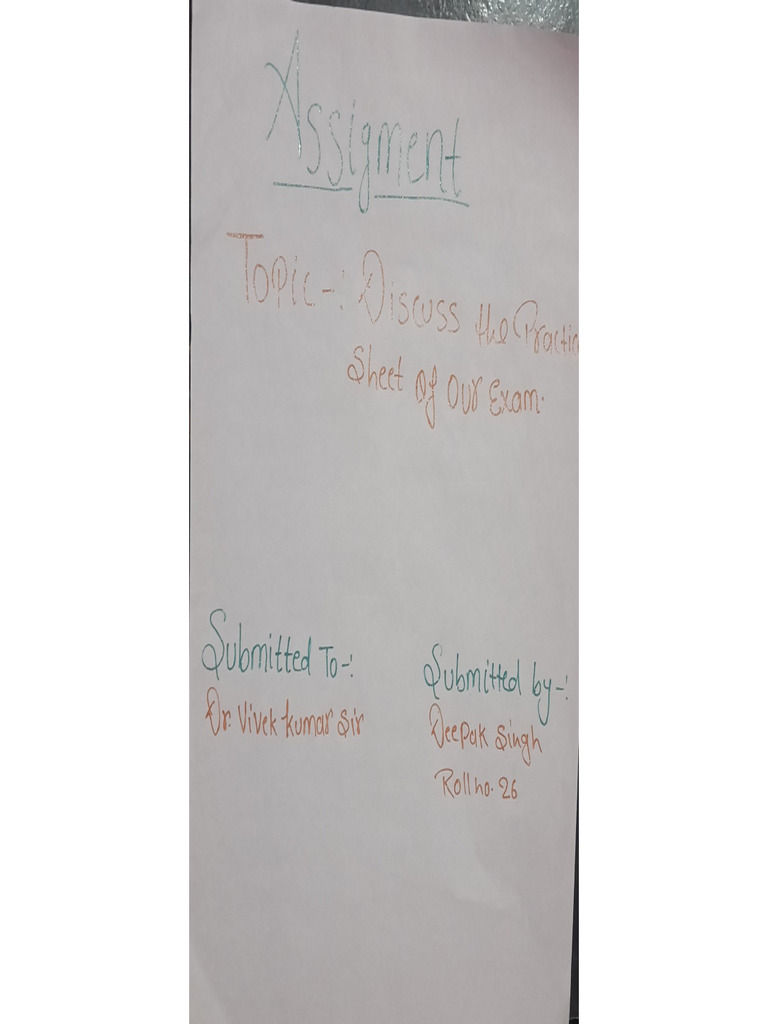 Assigment
Topic-: Discuss the Practic
Sheet of our Exam.
Submitted To-:
Dr. Vivek kumar Sir
Submitted by-:
Deepak Singh
Roll no. 26